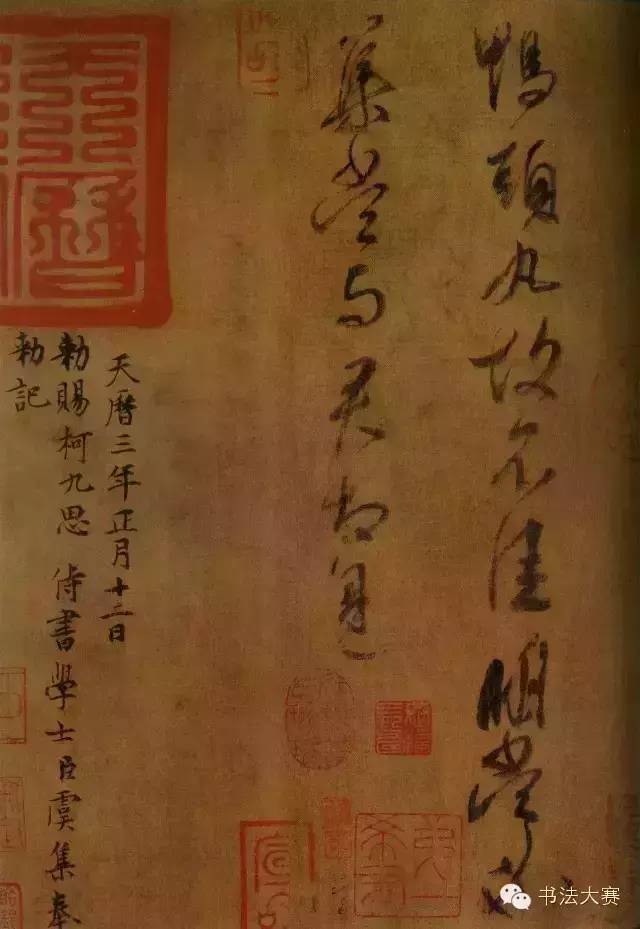 鴨頭丸故不佳明當必
集當与君相見
天曆三年正月十二日
勑賜柯九思 侍書學士臣虞集奉
勑記
书法大赛